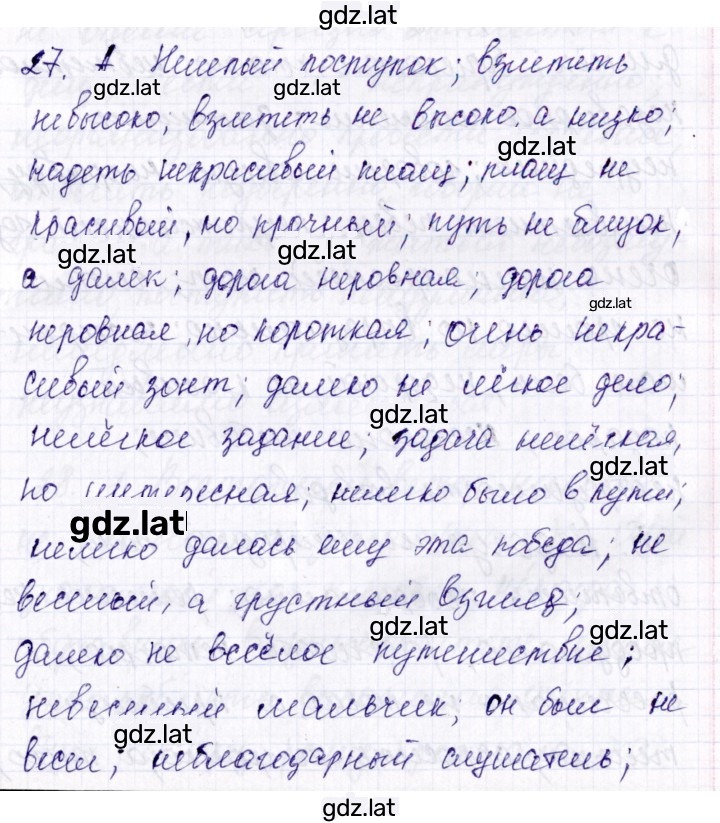 gdz.lat
27. А Нелепый поступок; взлететь
gdz.lat
невысоко; взлететь не высоко, а низко;
gdz.lat
надеть некрасивый плащ; плащ не
красивый, но прочный; путь не близок,
gdz.lat gdz.lat
а далек; дорога неровная; дорога
gdz.lat
неровная, но короткая; очень некра-
сивый зонт; далеко не лёгкое дело;
gdz.lat
нелёгкое задание, задача нелёгкая,
gdz.lat
но интересная; нелегко было в пути;
gdz.lat
нелегко далась ему эта победа; не
веселый, а грустный взгляд;
gdz.lat gdz.lat
далеко не весёлое путешествие;
невеселый мальчик, он был не
gdz.lat
весел; неблагодарный слушатель;
gdz.lat